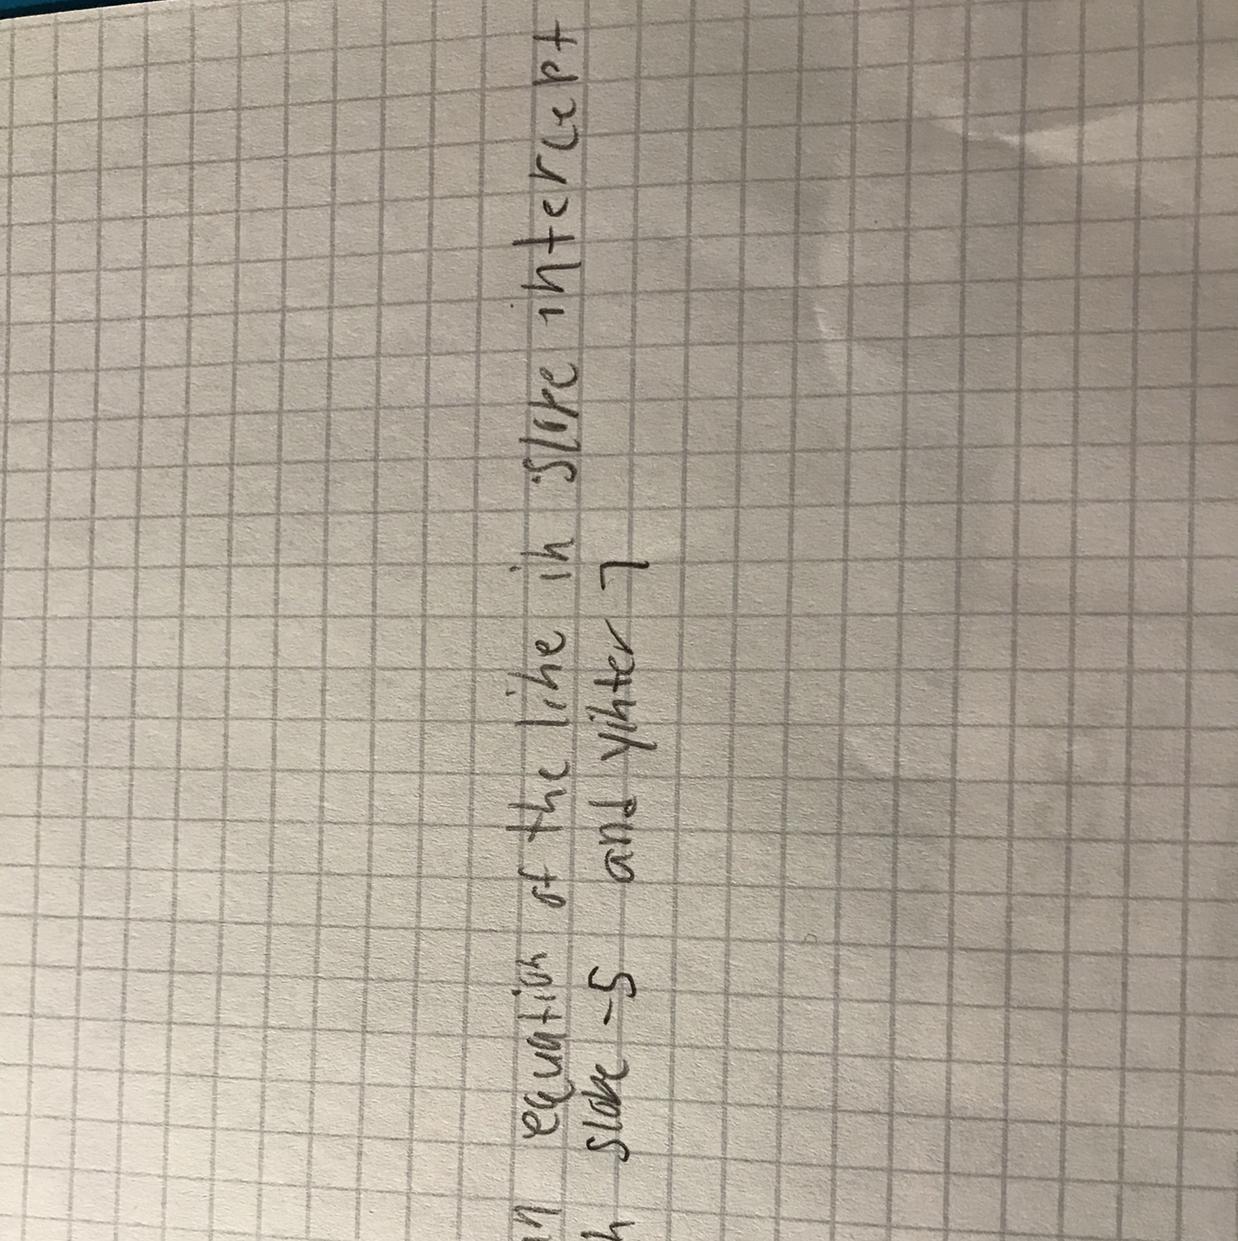 an equation of the line in slope intercept
h slope -5 and yinter 7